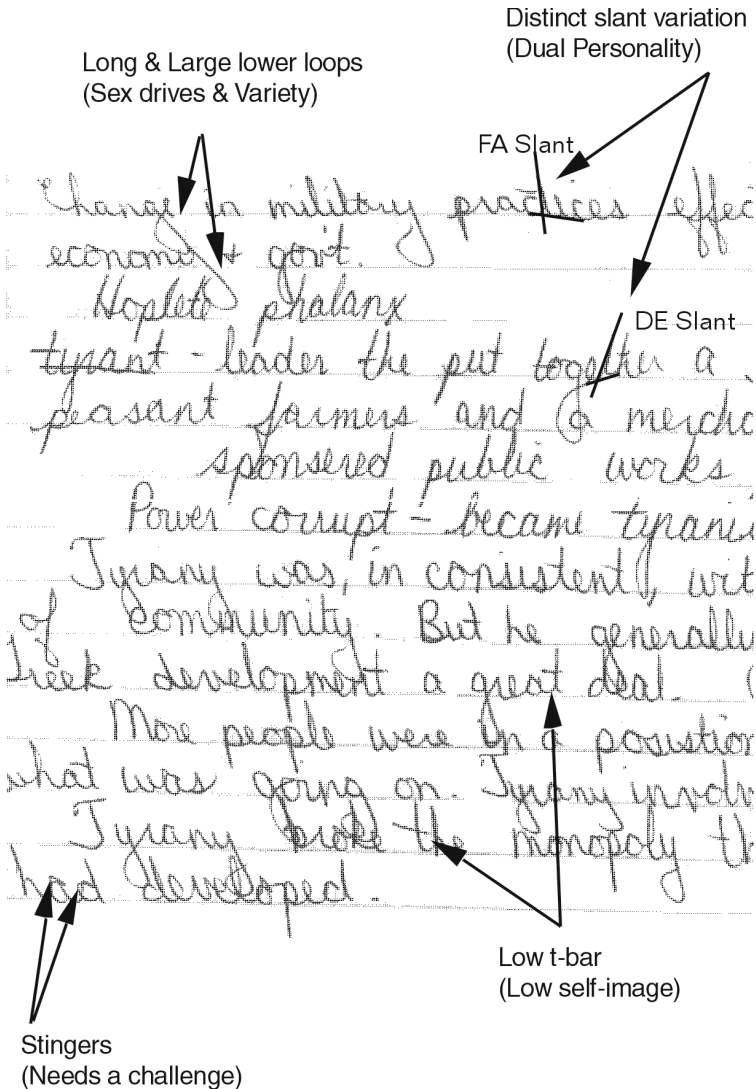 Distinct slant variation
(Dual Personality)
Long & Large lower loops
(Sex drives & Variety)
FA Slant
Change in military practices effec
economi & gov't.
Hoplete phalanx
DE Slant
tyrant - leader the put together a
peasant farmers and a mercha
sponsered public works
Power corrupt - became tyrani
Tyrany was, in consistent, wit
of community. But he generally
Greek development a great deal.
More people were in a position
what was going on. Tyrany involv
Tyrany broke the monopoly th
had developed.
Low t-bar
(Low self-image)
Stingers
(Needs a challenge)